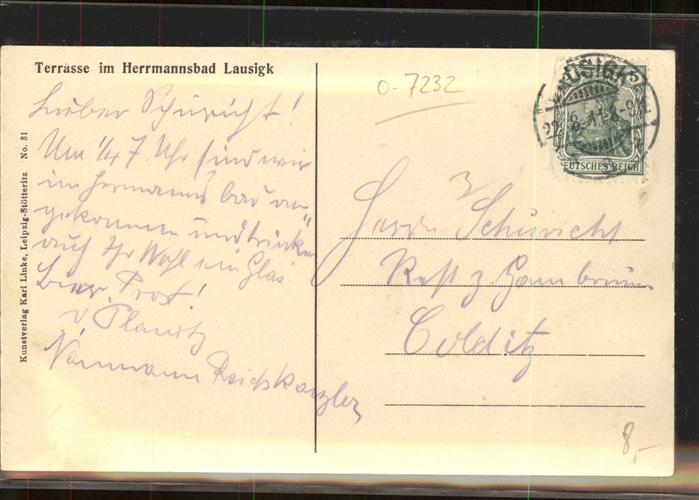 Terrasse im Herrmannsbad Lausigk
Lieber Schuricht!
Um 1/4 7. Uhr sind wir
im Hermanns bad an-
gekommen und trinken
auf Ihr Wohl ein Glas
Bier. Prost!
v Planitz
Normann Reichskanzler
Kunstverlag Karl Linke, Leipzig-Stötteritz No. 31
0-7232
LAUSIGK
DEUTSCHES REICH
Herrn Schuricht
Rest z. Gambrinus
Colditz
8,-